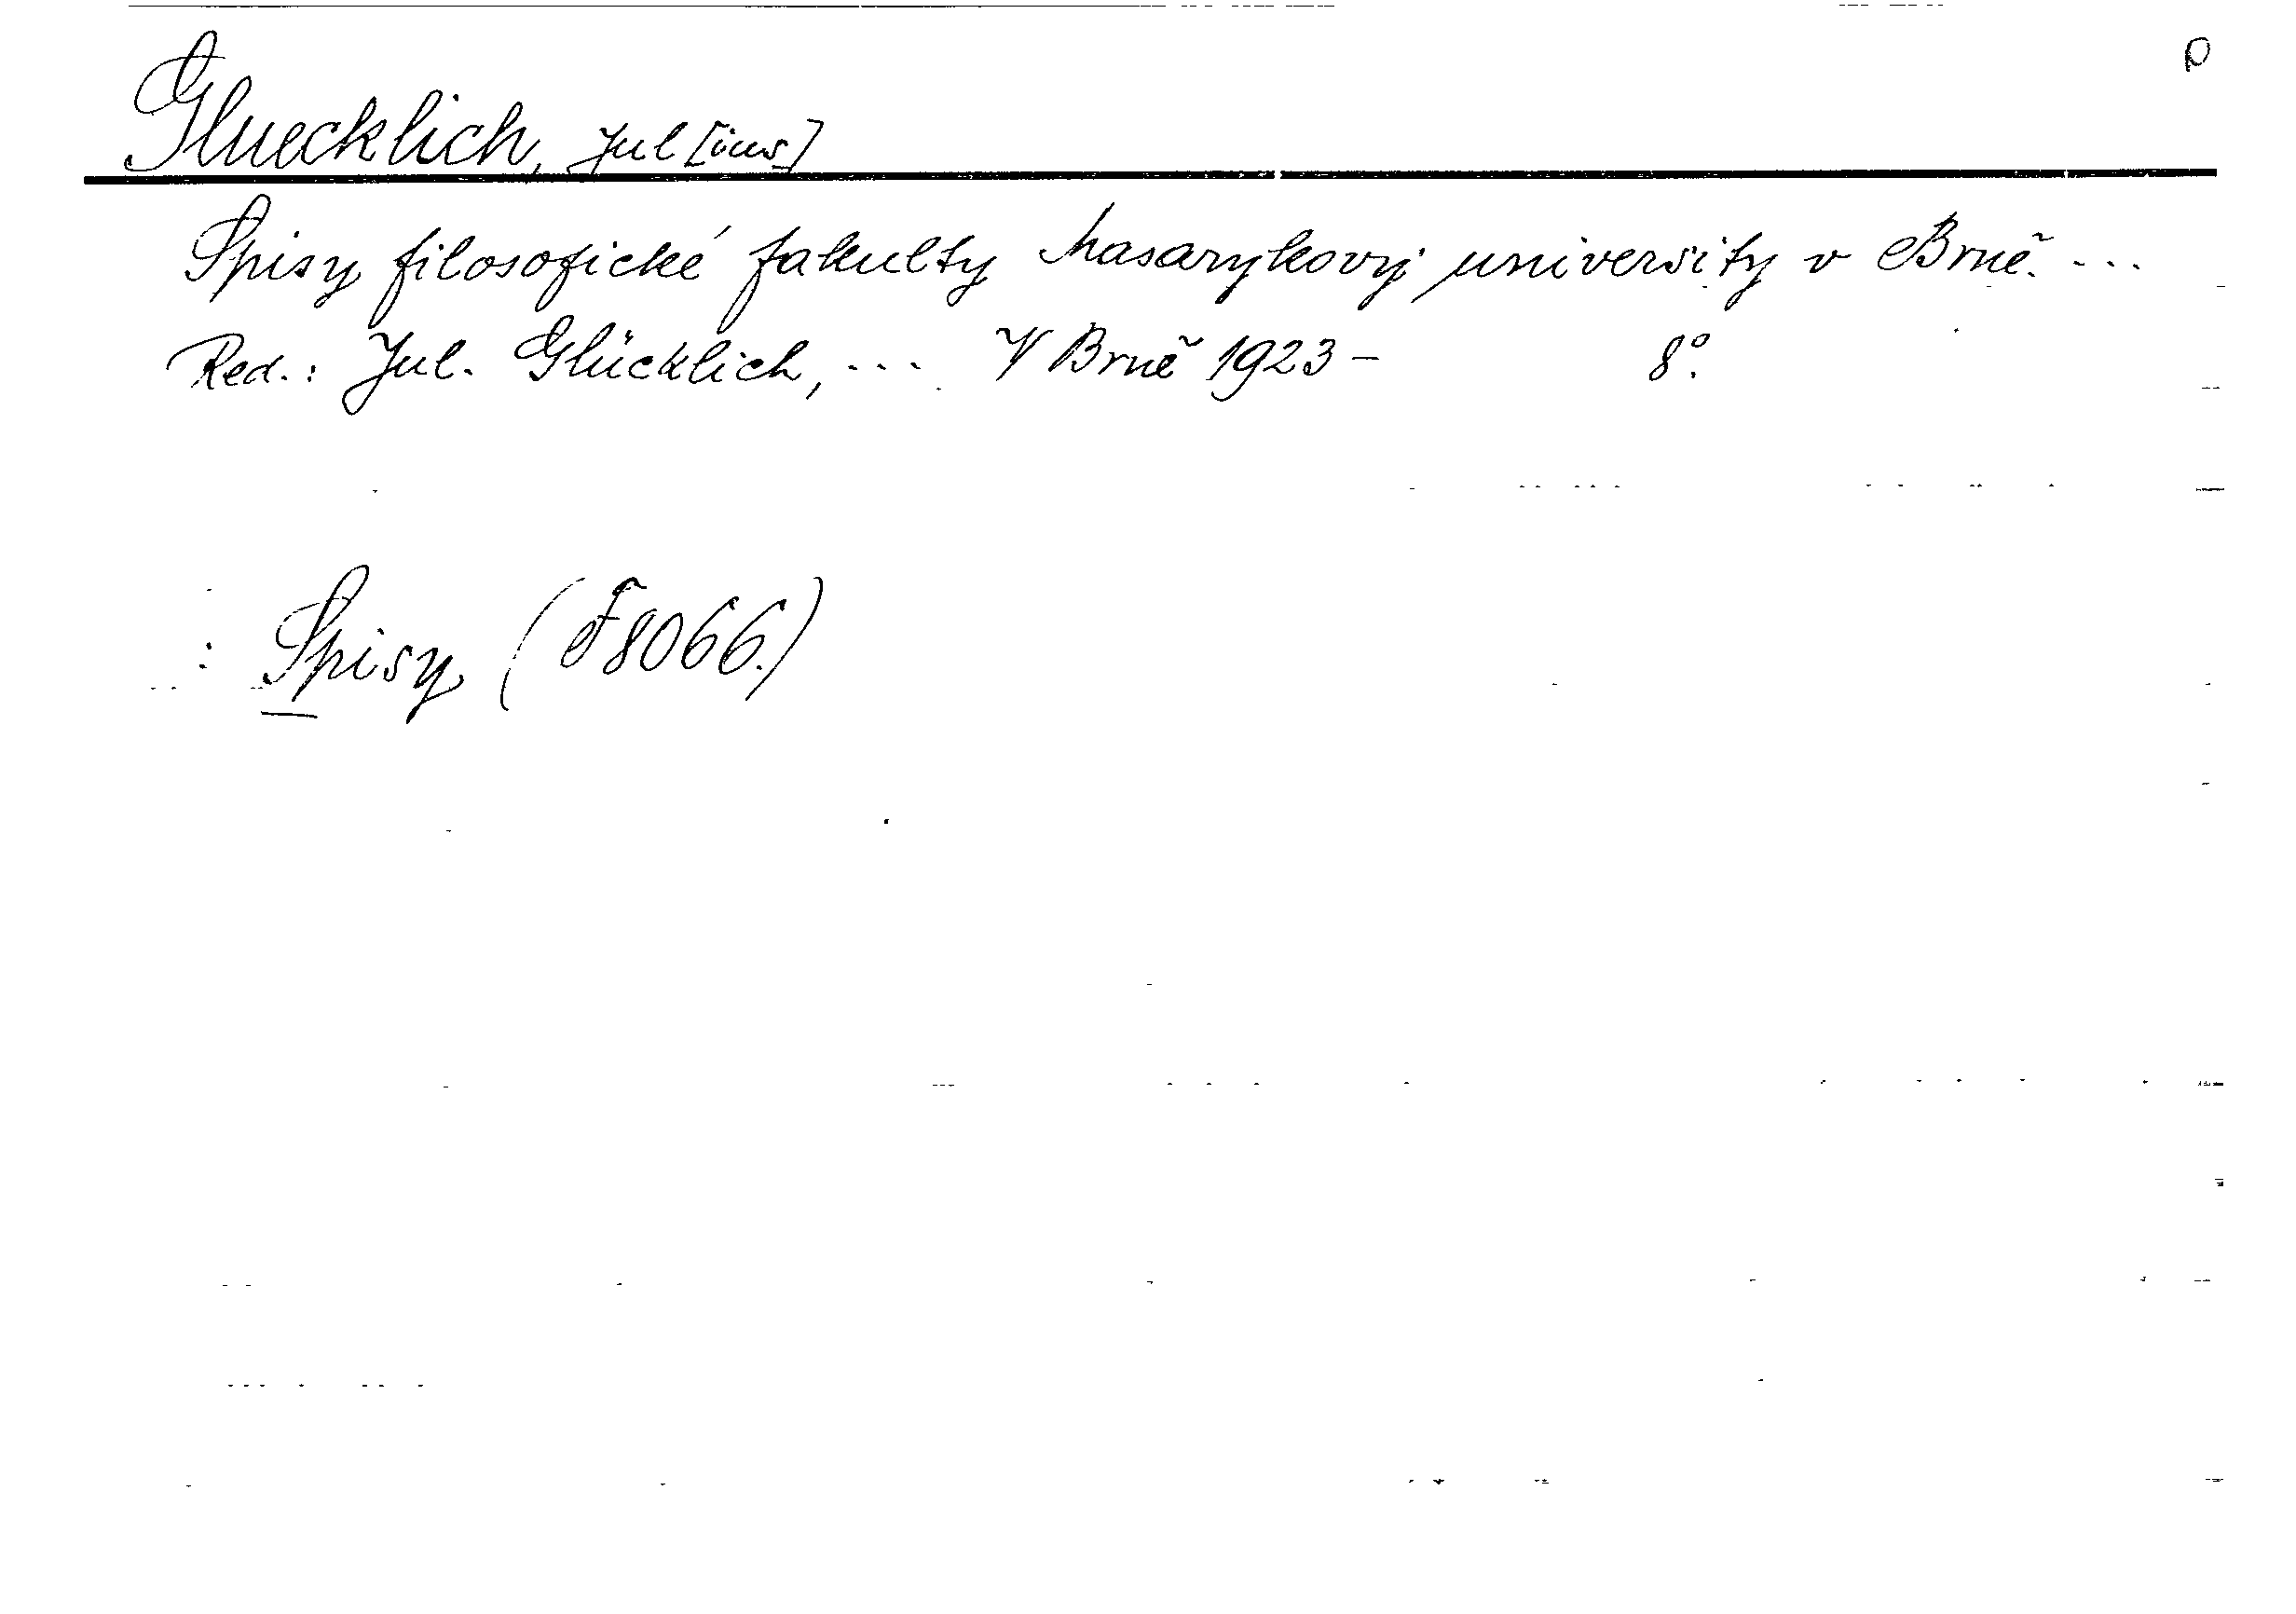 Gluecklich, Jul[ius]
Spisy filosofické fakulty Masarykovy university v Brně. ...
Red.: Jul. Glücklich, ... V Brně 1923- 8°.
: Spisy (F8066.)